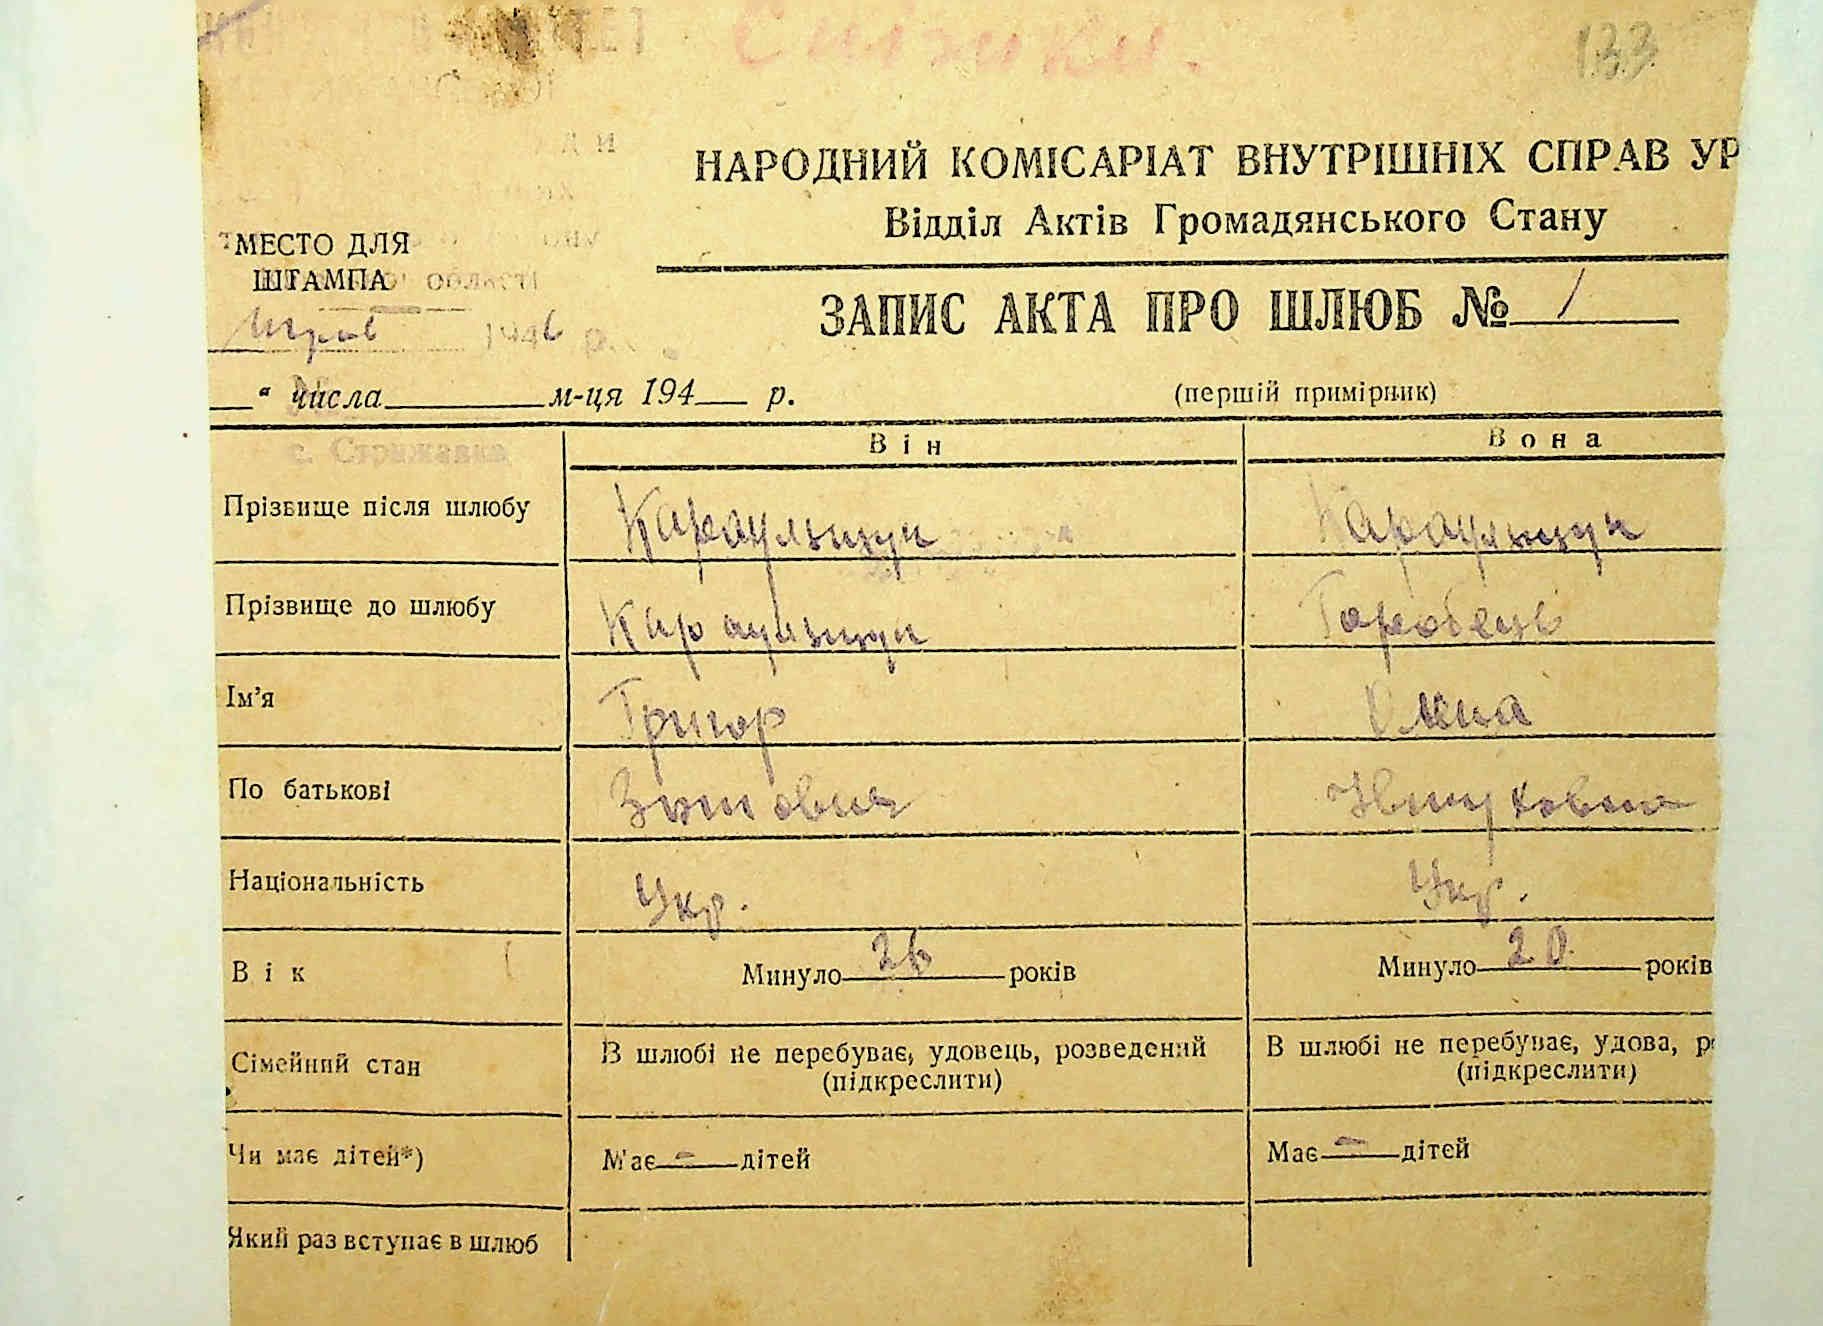 133
НАРОДНИЙ КОМІСАРІАТ ВНУТРІШНІХ СПРАВ УР
Відділ Актів Громадянського Стану
МЕСТО ДЛЯ
ШТАМПА
області
1946 р.
ЗАПИС АКТА ПРО ШЛЮБ № 1
" числа м-ця 194 р.
(першій примірник)
с. Стрижавка
Він
Вона
Прізвище після шлюбу
Караульщук
Караульщук
Прізвище до шлюбу
Караульщук
Горобець
Ім'я
Григор
Олена
По батькові
Національність
Укр.
Укр.
Вік
Минуло 26 років
Минуло 20 років
Сімейний стан
В шлюбі не перебуває, удовець, розведений
(підкреслити)
В шлюбі не перебуває, удова, р
(підкреслити)
Чи має дітей*)
Має - дітей
Має - дітей
Який раз вступає в шлюб